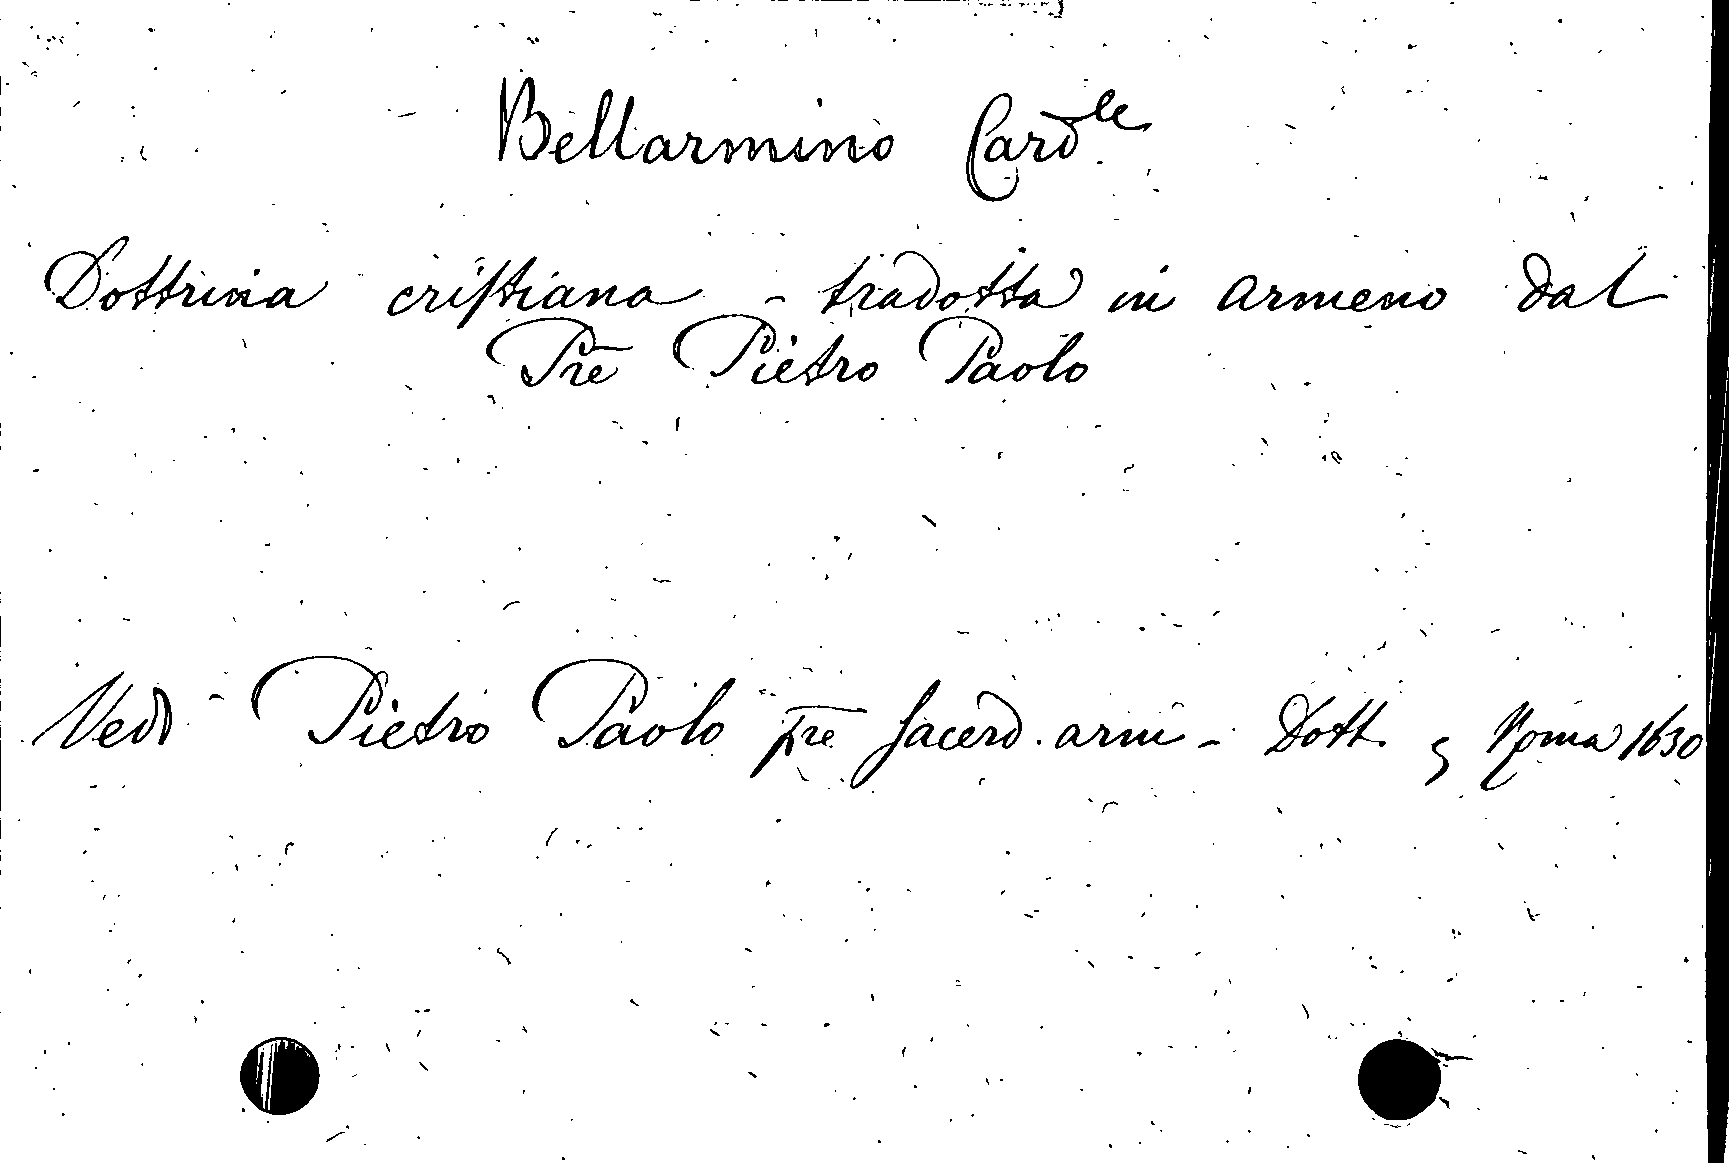 Bellarmino Card.le
Dottrina cristiana - tradotta in armeno dal
Pre Pietro Paolo
Vedi Pietro Paolo pre sacerd. arm - Dott. Roma 1630